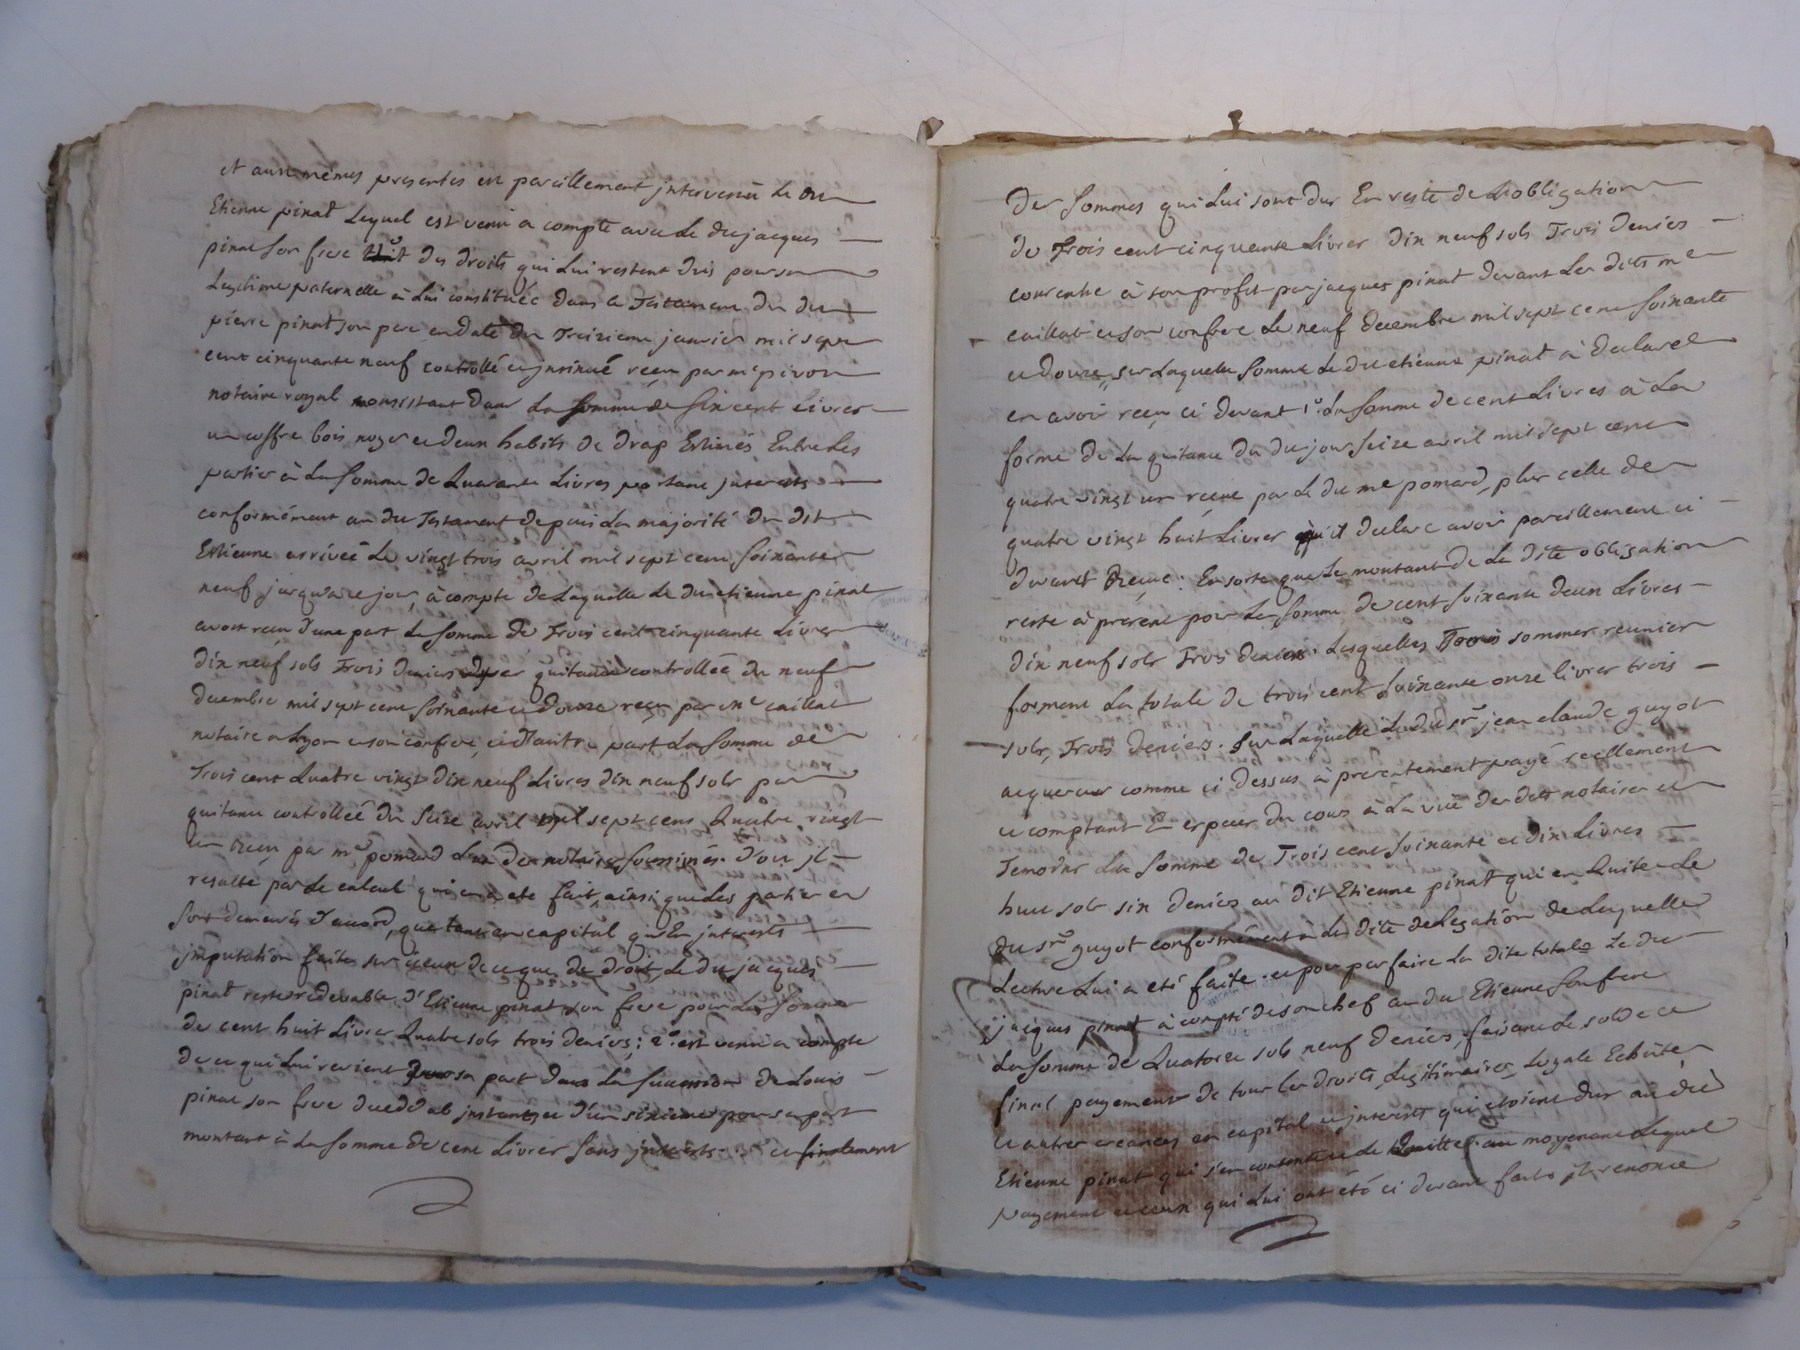 et aux mêmes presentes est pareillement intervenü le dit
Etienne pinat Lequel est venu a compte avec Le dit jacques
pinat son frere 1° des droits qui Lui restent dus pour sa
Legitime paternelle à Lui constituée dans le Testament du dit
pierre pinat son pere en date du Treizieme janvier mil sept
cent cinquante neuf controllé et insinué reçu par me pivon
notaire royal consistant dans La somme de Six cent Livres
un coffre bois noyer et deux habits de drap Estimés Entre Les
parties à La somme de Quarante Livres portant interets
conformément au dit Testament depuis La majorité du dit
Etienne arrivée Le vingt trois avril mil sept cent soixante
neuf jusqu'à ce jour, à compte de Laquelle Le dit etienne pinat
avoit reçu d'une part La somme de Trois cent cinquante Livres
dix neuf sols Trois deniers par quitance controllée du neuf
decembre mil sept cent soixante et douze reçu par me caillat
notaire a Lyon et son confrere, et d'autre part La somme de
Trois cent Quatre vingt dix neuf Livres dix neuf sols par
quitance controllée du Seize avril mil sept cens Quatre vingt
un reçu par me pomard L'un des notaires soussignés. D'où il
resulte par Le calcul qui en a eté fait, ainsi que Les parties en
sont demeurés d'accord, que tant en capital qu'En interets
imputation faite sur iceux de ce que de droit, Le dit jacques
pinat reste redevable d'Etienne pinat son frere pour La somme
de cent huit Livres Quatre sols trois deniers; 2° est venu a compte
de ce qui Lui revient pour sa part dans La succession de Louis
pinat son frere decedé ab instat et d'un sixieme pour sa part
montant à La somme de cent Livres sans interets. et finalement
Des sommes qui Lui sont dus En reste de L'obligation
de Trois cent cinquante Livres dix neuf sols Trois deniers
consentie à son profit par jacques pinat devant Les dits me
caillat et son confrere Le neuf decembre mil sept cent soixante
et douze, sur Laquelle somme Le dit etienne pinat à declaré
en avoir reçu ci devant 1° La somme de cent Livres à La
forme de La quitance du dit jour seize avril mil sept cent
quatre vingt un reçue par Le dit me pomard, plus celle de
quatre vingt huit Livres qu'il declare avoir pareillement ci
devant Reçue: En sorte que Le montant de La dite obligation
reste à present pour La somme de cent soixante deux Livres
dix neuf sols Trois deniers. Lesquelles Trois sommes reunies
forment La totale de trois cent soixante onze livres trois
sols, Trois deniers. Sur Laquelle Le dit sr. jean claude guyot
acquereur comme ci dessus à presentement payé reellement
et comptant En especes du cours à La vue des dits notaires et
Temoins La somme de Trois cent soixante et dix Livres
huit sols six deniers au dit Etienne pinat qui en Quite Le
dit sr. guyot conformément à La dite delegation de Laquelle
Lecture Lui a eté faite. et pour parfaire La dite totale Le dit
jacques pinat à compté de son chef au dit Etienne son frere
La somme de Quatorze sols neuf deniers, faisant Le solde et
final payement de tous Les droits Legitimaires Legale Echüte
et autres creances en capital et interets qui etoient dus au dit
Etienne pinat qui s'en contente et Le Quitte. au moyen Lequel
payement et ceux qui Lui ont été ci devant faits il renonce